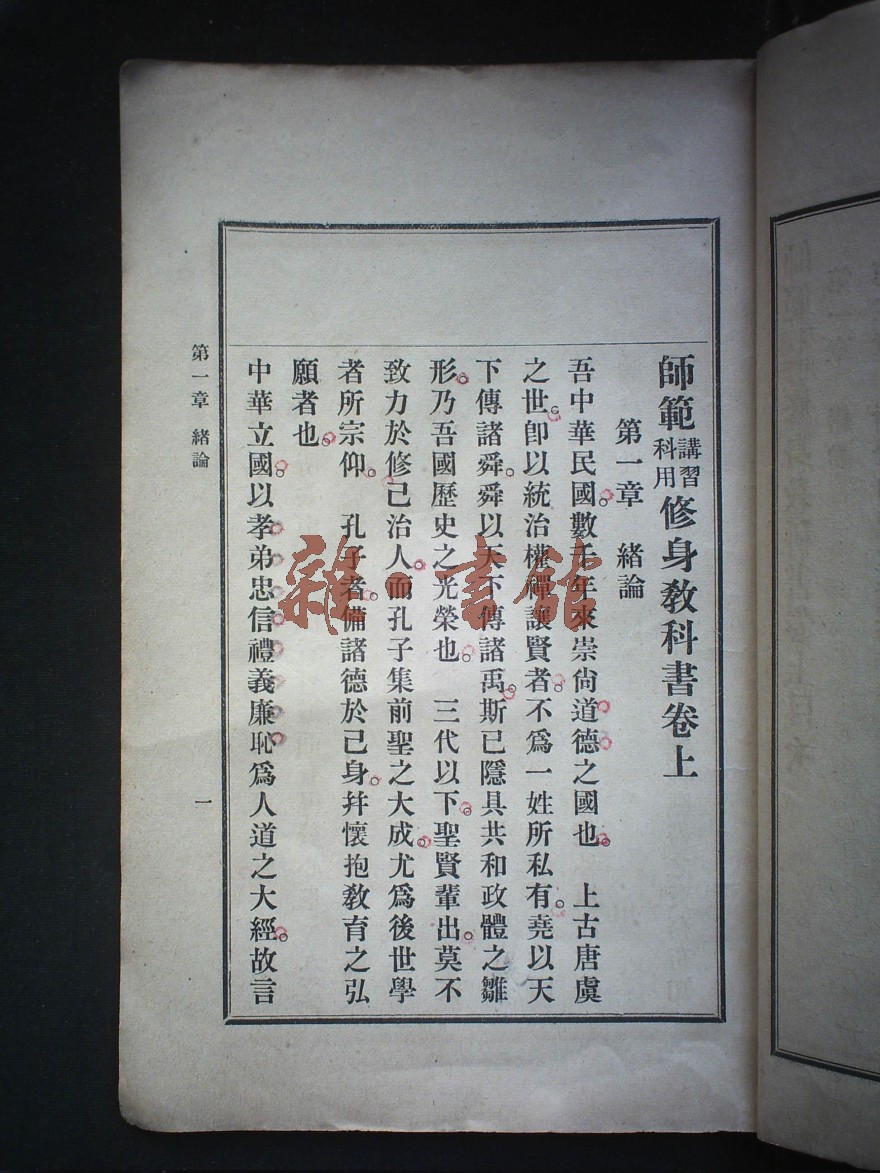 師範講習科用修身教科書卷上
第一章　緒論
吾中華民國。數千年來崇尙道德之國也。　上古唐虞
之世。卽以統治權禪讓賢者。不爲一姓所私有。堯以天
下傳諸舜。舜以天下傳諸禹。斯已隱具共和政體之雛
形。乃吾國歷史之光榮也。　三代以下。聖賢輩出。莫不
致力於修己治人。而孔子集前聖之大成。尤爲後世學
者所宗仰。　孔子者。備諸德於己身。幷懷抱敎育之弘
願者也。
中華立國。以孝弟忠信禮義廉恥爲人道之大經。故言
第一章　緒論
一
雜·書館